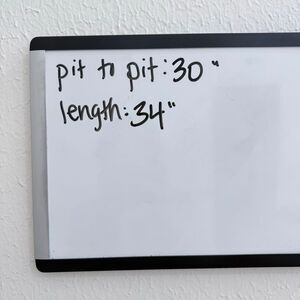 pit to pit: 30"
length: 34"